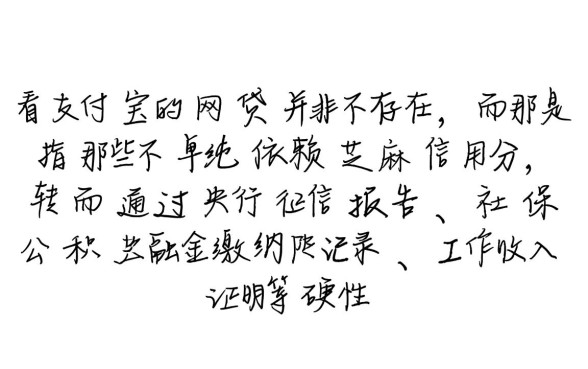 看支付宝的网贷并非不存在，而那是
指那些不单纯依赖芝麻信用分，
转而通过央行征信报告、社保
公积 金缴纳 记录、工作收入
证明等硬性